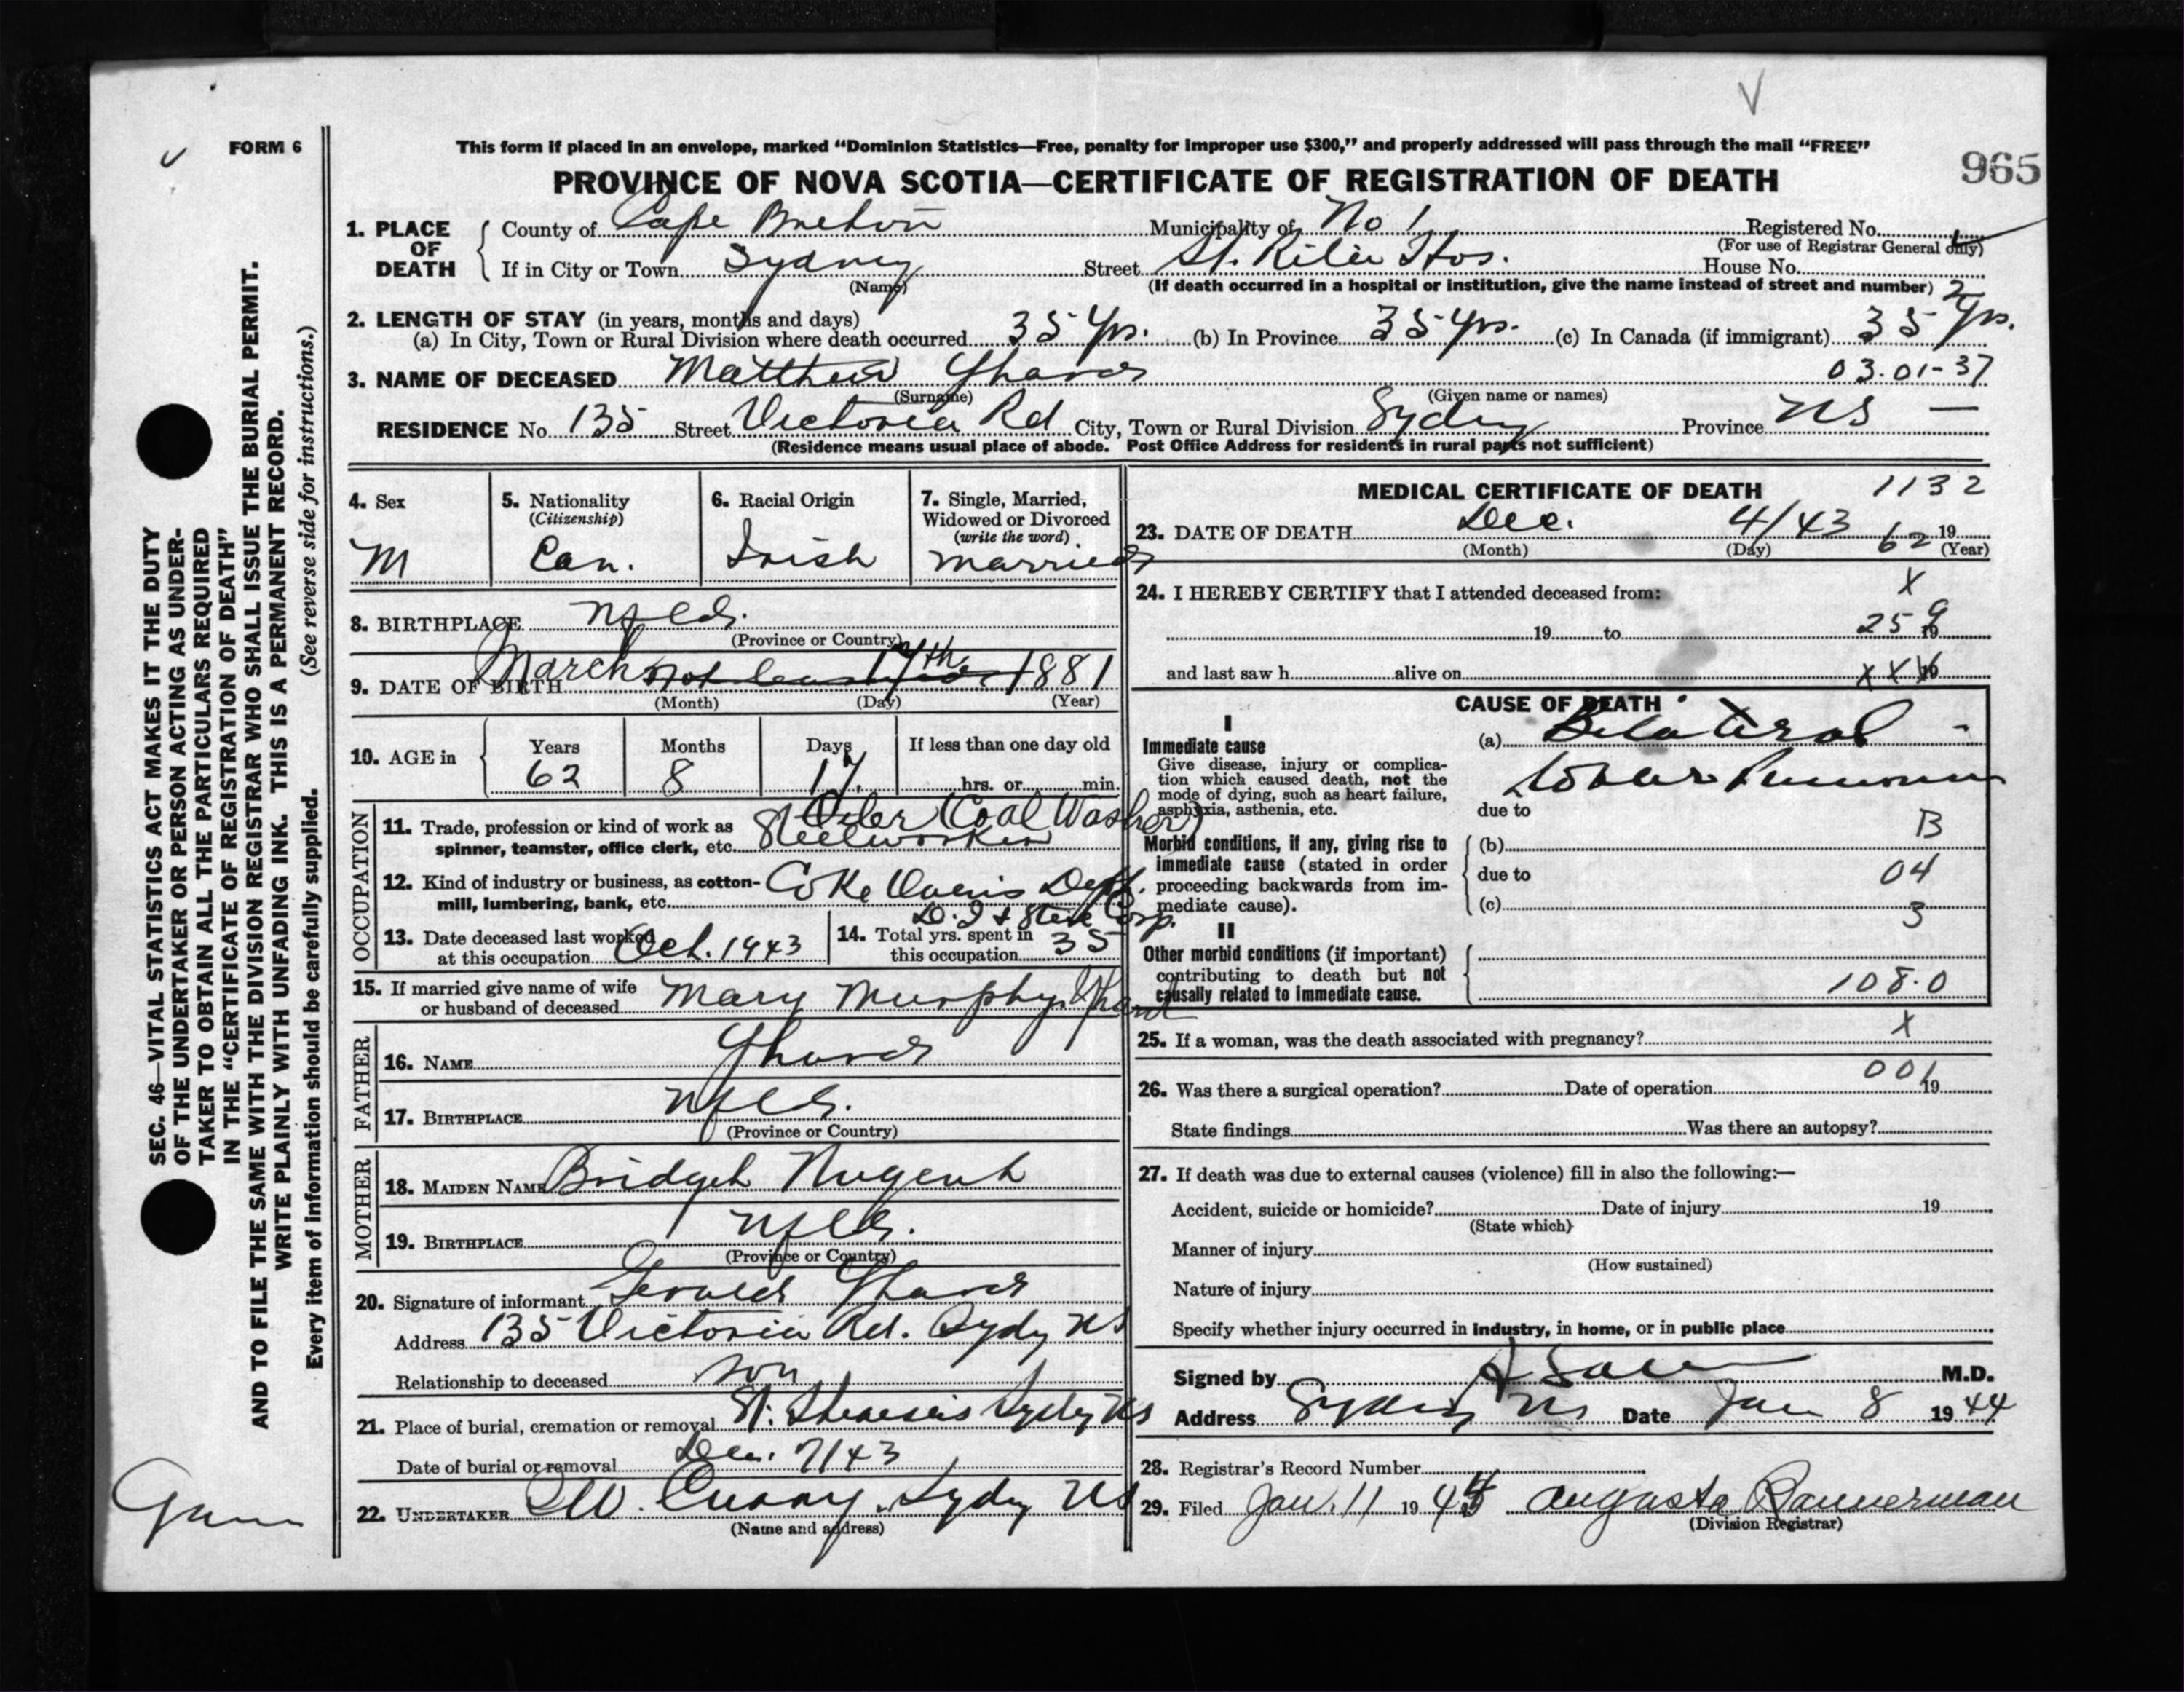 V
FORM 6
This form if placed in an envelope, marked "Dominion Statistics—Free, penalty for improper use $300," and properly addressed will pass through the mail "FREE"
965
PROVINCE OF NOVA SCOTIA—CERTIFICATE OF REGISTRATION OF DEATH
1. PLACE OF DEATH
County of Cape Breton Municipality of No 1 Registered No.
(For use of Registrar General only)
If in City or Town Sydney Street St. Rita Hos. House No.
(Name) (If death occurred in a hospital or institution, give the name instead of street and number) 2
2. LENGTH OF STAY (in years, months and days)
(a) In City, Town or Rural Division where death occurred 35 yrs. (b) In Province 35 yrs. (c) In Canada (if immigrant) 35 yrs.
3. NAME OF DECEASED Matthew 03.01-37
(Surname) (Given name or names)
RESIDENCE No. 135 Street Victoria Rd City, Town or Rural Division Sydney Province NS —
(Residence means usual place of abode. Post Office Address for residents in rural parts not sufficient)
4. Sex
M
5. Nationality
(Citizenship)
Can.
6. Racial Origin
Irish
7. Single, Married,
Widowed or Divorced
(write the word)
married
8. BIRTHPLACE Nfld.
(Province or Country)
9. DATE OF BIRTH March 17th 1881
(Month) (Day) (Year)
10. AGE in
Years Months Days If less than one day old
62 8 17 hrs. or min.
OCCUPATION
Oiler (Coal Washer)
11. Trade, profession or kind of work as
spinner, teamster, office clerk, etc. Steelworker
12. Kind of industry or business, as cotton-
mill, lumbering, bank, etc. Coke Ovens Dept.
D. I & Steel Corp.
13. Date deceased last worked
at this occupation Oct. 1943
14. Total yrs. spent in
this occupation 35
15. If married give name of wife
or husband of deceased Mary Murphy
FATHER
16. NAME
17. BIRTHPLACE Nfld.
(Province or Country)
MOTHER
18. MAIDEN NAME Bridget Nugent
19. BIRTHPLACE Nfld.
(Province or Country)
20. Signature of informant Gerald
Address 135 Victoria Rd. Sydy NS
Relationship to deceased son
21. Place of burial, cremation or removal St. Sydy NS
Date of burial or removal Dec. 7/43
22. UNDERTAKER Curry, Sydy NS
(Name and address)
MEDICAL CERTIFICATE OF DEATH 1132
23. DATE OF DEATH Dec. 4/43 62 19
(Month) (Day) (Year)
24. I HEREBY CERTIFY that I attended deceased from: X
19 to 259 19
and last saw h alive on XXX 19
CAUSE OF DEATH
I
Immediate cause
Give disease, injury or complica-
tion which caused death, not the
mode of dying, such as heart failure,
asphyxia, asthenia, etc.
(a) Bilateral -
Lobar Pneumonia
due to
Morbid conditions, if any, giving rise to
immediate cause (stated in order
proceeding backwards from im-
mediate cause).
B
(b)
due to 04
(c) 3
II
Other morbid conditions (if important)
contributing to death but not
causally related to immediate cause.
108.0
25. If a woman, was the death associated with pregnancy? X
26. Was there a surgical operation? Date of operation 001 19
State findings Was there an autopsy?
27. If death was due to external causes (violence) fill in also the following:—
Accident, suicide or homicide? Date of injury 19
(State which)
Manner of injury
(How sustained)
Nature of injury
Specify whether injury occurred in industry, in home, or in public place
Signed by M.D.
Address Sydney NS Date Jan 8 1944
28. Registrar's Record Number
29. Filed Jan. 11 1944 Augusta Bannerman
(Division Registrar)
SEC. 46—VITAL STATISTICS ACT MAKES IT THE DUTY
OF THE UNDERTAKER OR PERSON ACTING AS UNDER-
TAKER TO OBTAIN ALL THE PARTICULARS REQUIRED
IN THE "CERTIFICATE OF REGISTRATION OF DEATH"
AND TO FILE THE SAME WITH THE DIVISION REGISTRAR WHO SHALL ISSUE THE BURIAL PERMIT.
WRITE PLAINLY WITH UNFADING INK. THIS IS A PERMANENT RECORD.
Every item of information should be carefully supplied. (See reverse side for instructions.)